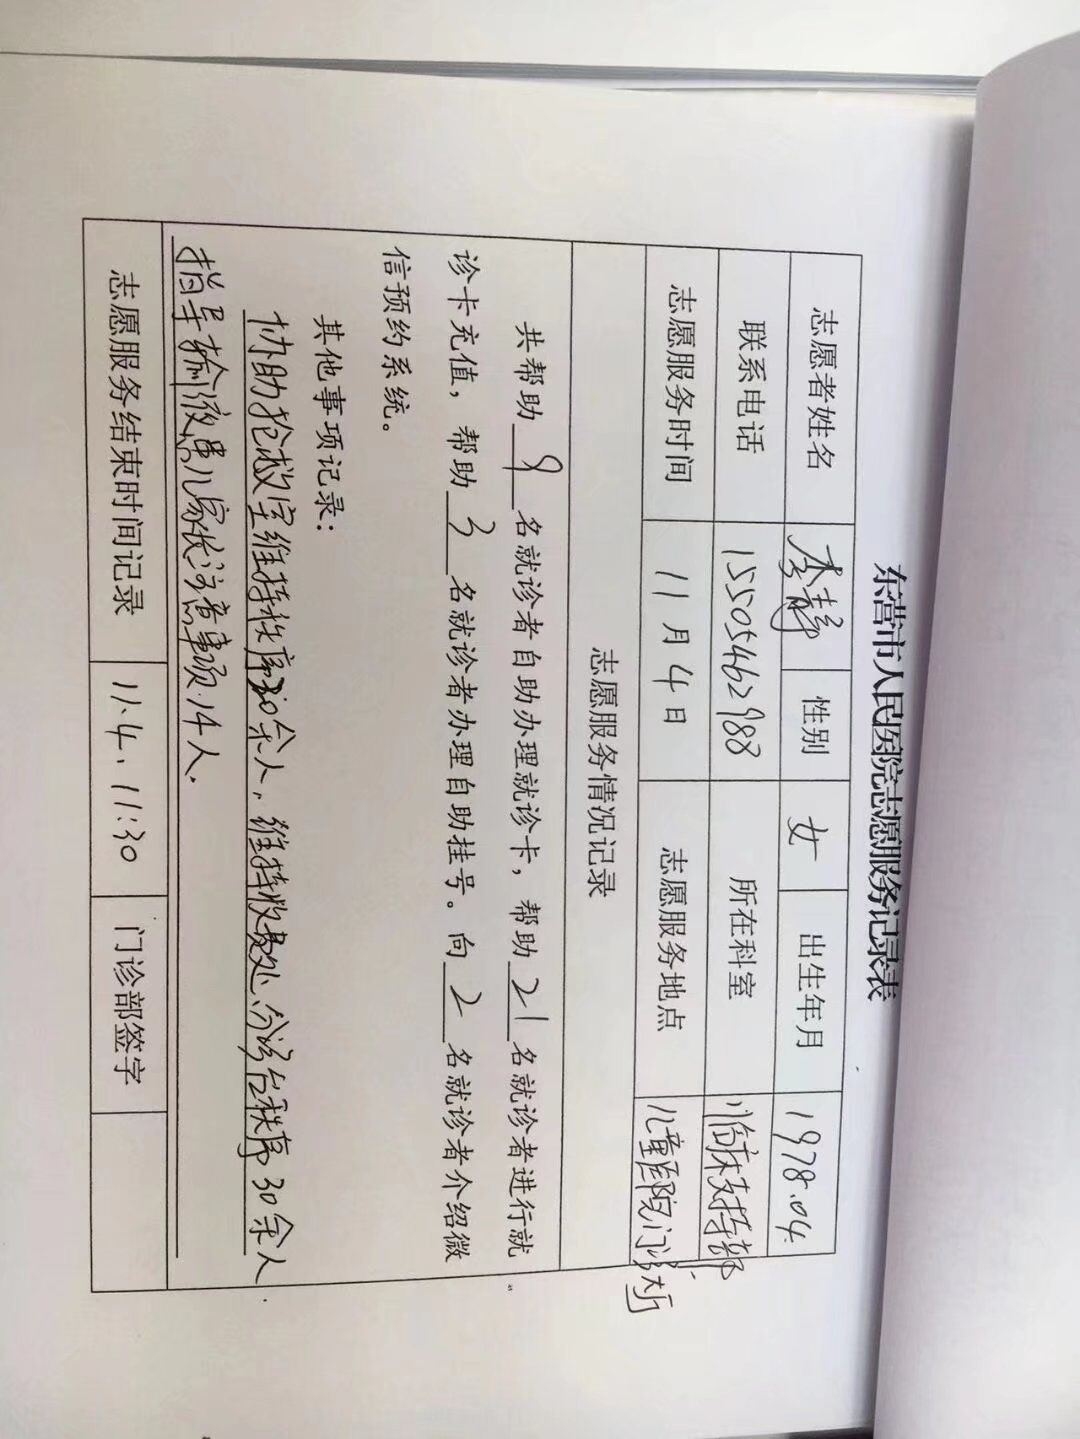 东营市人民医院志愿服务记录表
志愿者姓名 李静 性别 女 出生年月 1978.04.
联系电话 15505462988 所在科室 临床支持部
志愿服务时间 11月4日 志愿服务地点 儿童医院门诊大厅
志愿服务情况记录
共帮助 9 名就诊者自助办理就诊卡，帮助 21 名就诊者进行就
诊卡充值，帮助 3 名就诊者办理自助挂号。向 2 名就诊者介绍微
信预约系统。
其他事项记录：
协助抢救室维持秩序20余人，维持收费处、分诊台秩序30余人
指导输液患儿家长注意事项.14人.
志愿服务结束时间记录 11.4. 11:30 门诊部签字